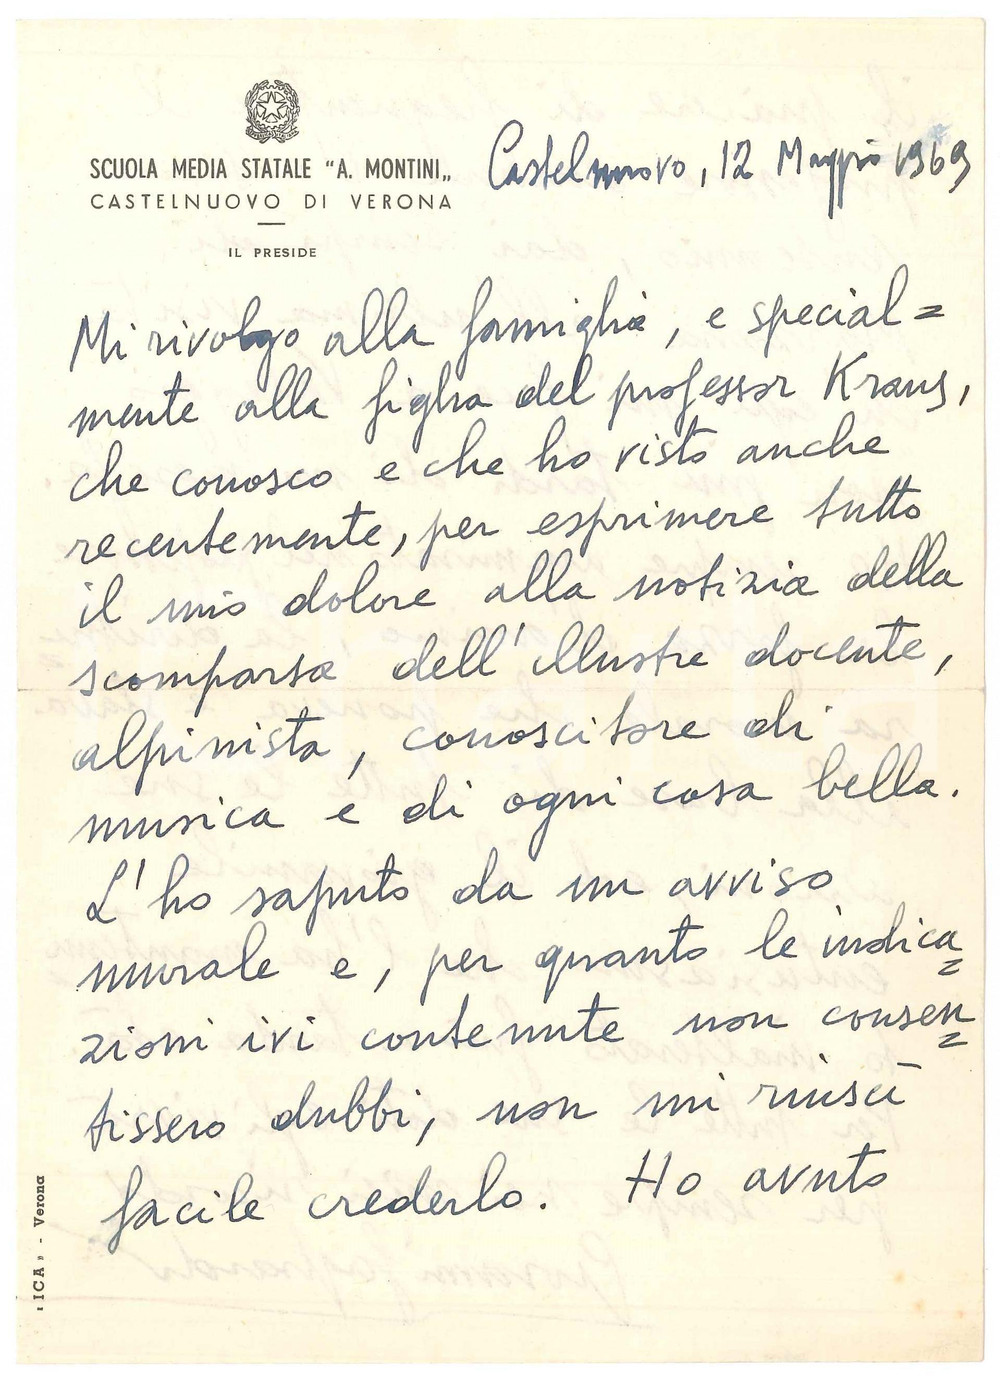 SCUOLA MEDIA STATALE "A. MONTINI„
CASTELNUOVO DI VERONA
IL PRESIDE
Castelnuovo, 12 Maggio 1969
Mi rivolgo alla famiglia, e special=
mente alla figlia del professor Kraus,
che conosco e che ho visto anche
recentemente, per esprimere tutto
il mio dolore alla notizia della
scomparsa dell'illustre docente,
alpinista, conoscitore di
musica e di ogni cosa bella.
L'ho saputo da un avviso
murale e, per quanto le indica=
zioni ivi contenute non consen=
tissero dubbi, non mi riuscì
facile crederlo. Ho avuto
"ICA" - Verona